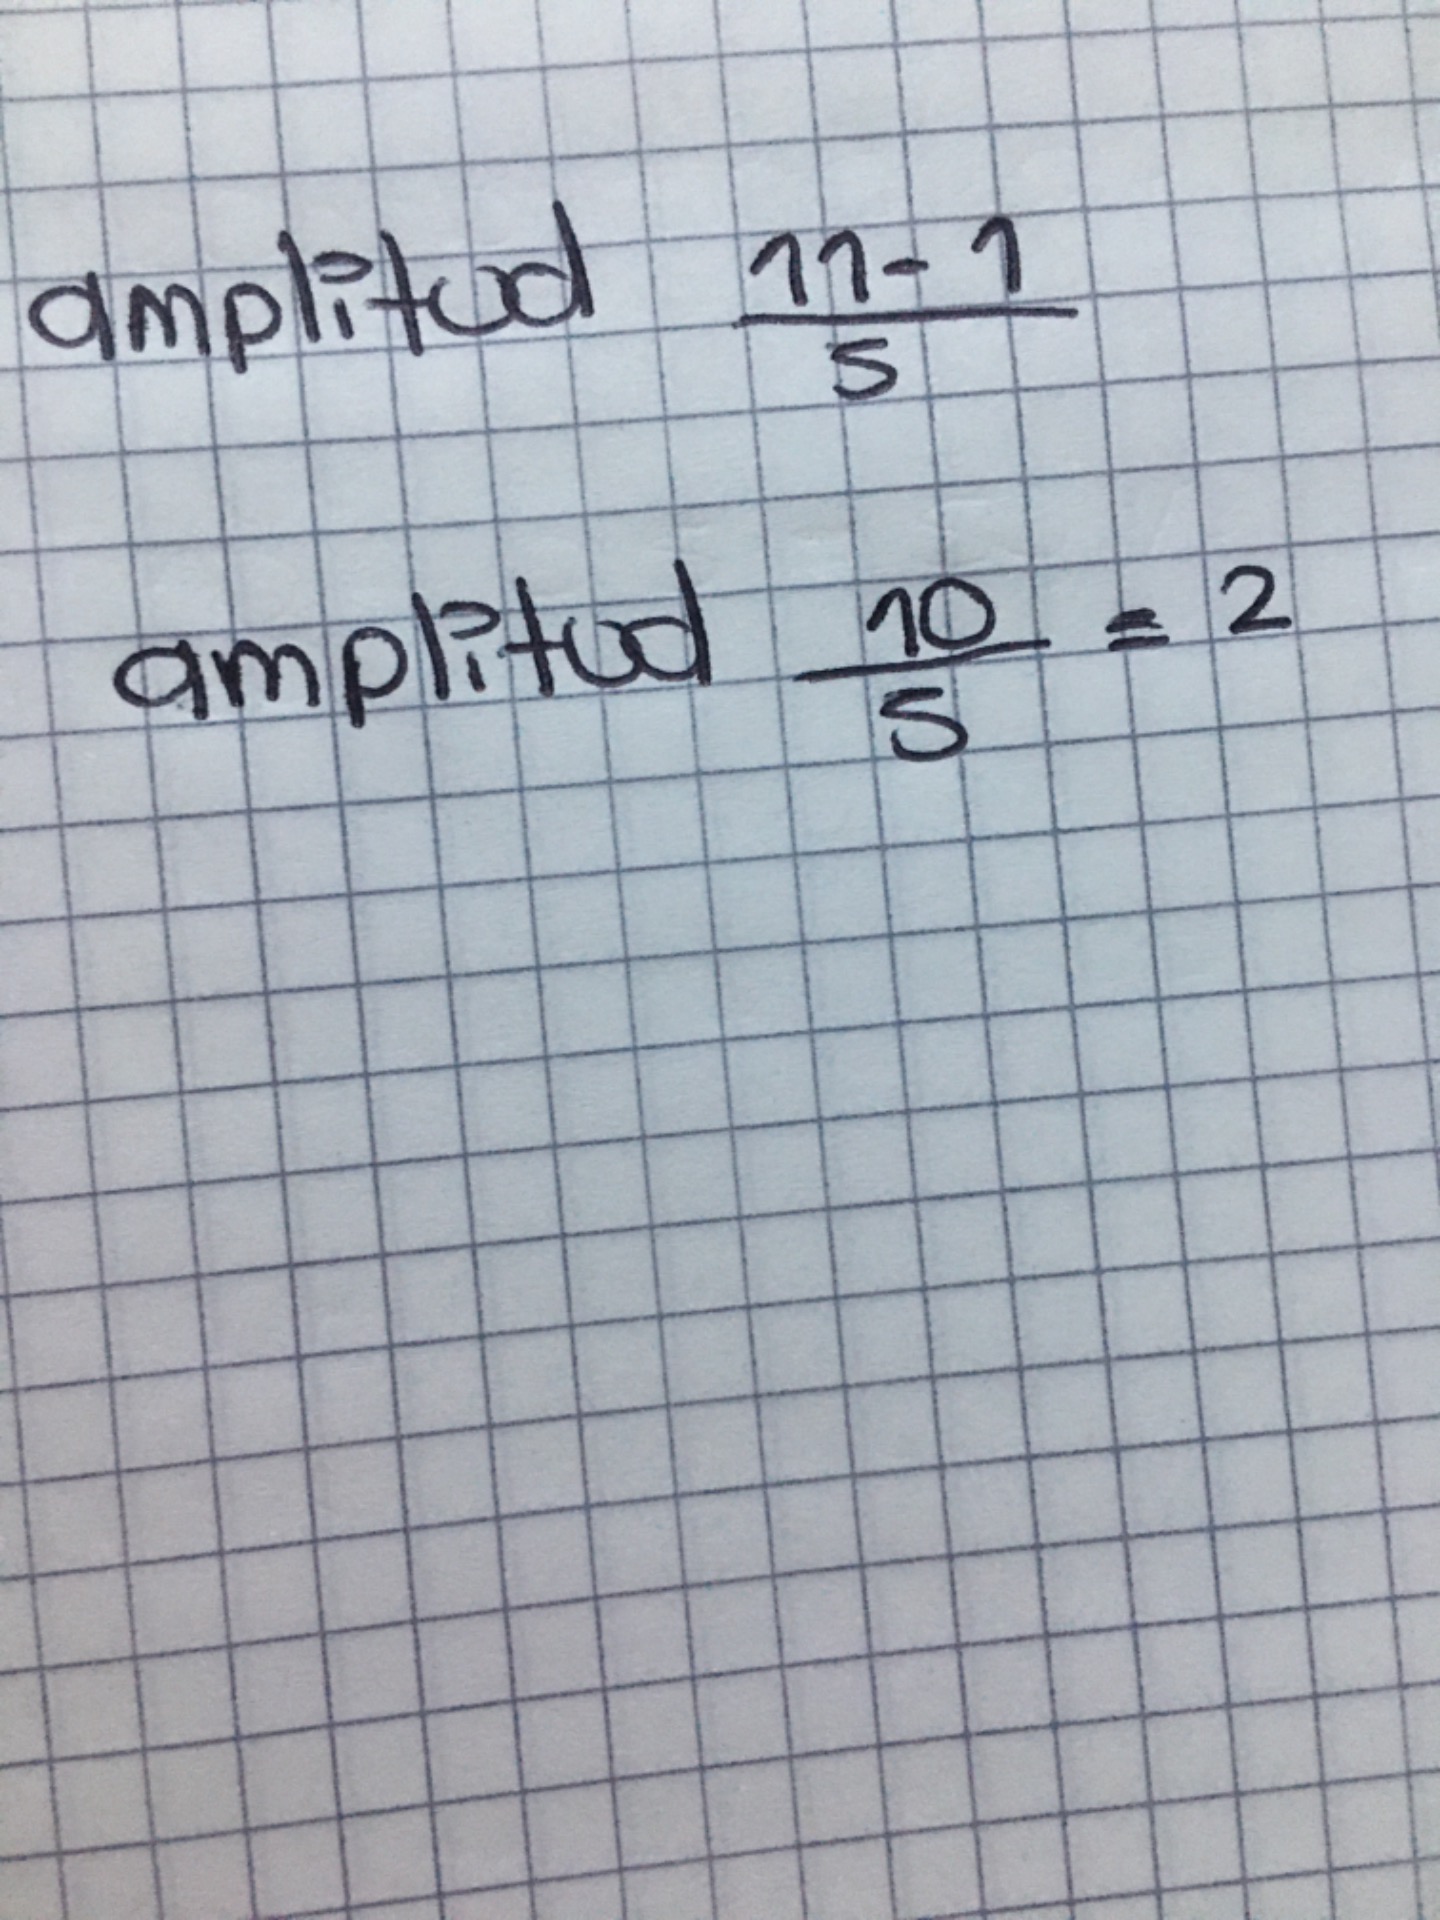 amplitud 11-1
5
amplitud 10 = 2
5